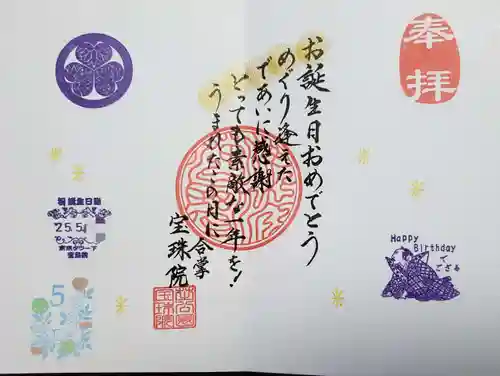 奉拝
お誕生日おめでとう
めぐり逢えた
であいに感謝
とっても素敵な一年を!
うまれたこの月に
合掌
宝珠院
Happy
Birthday
で
ござる
祝誕生日
25.5.
宝珠院
5